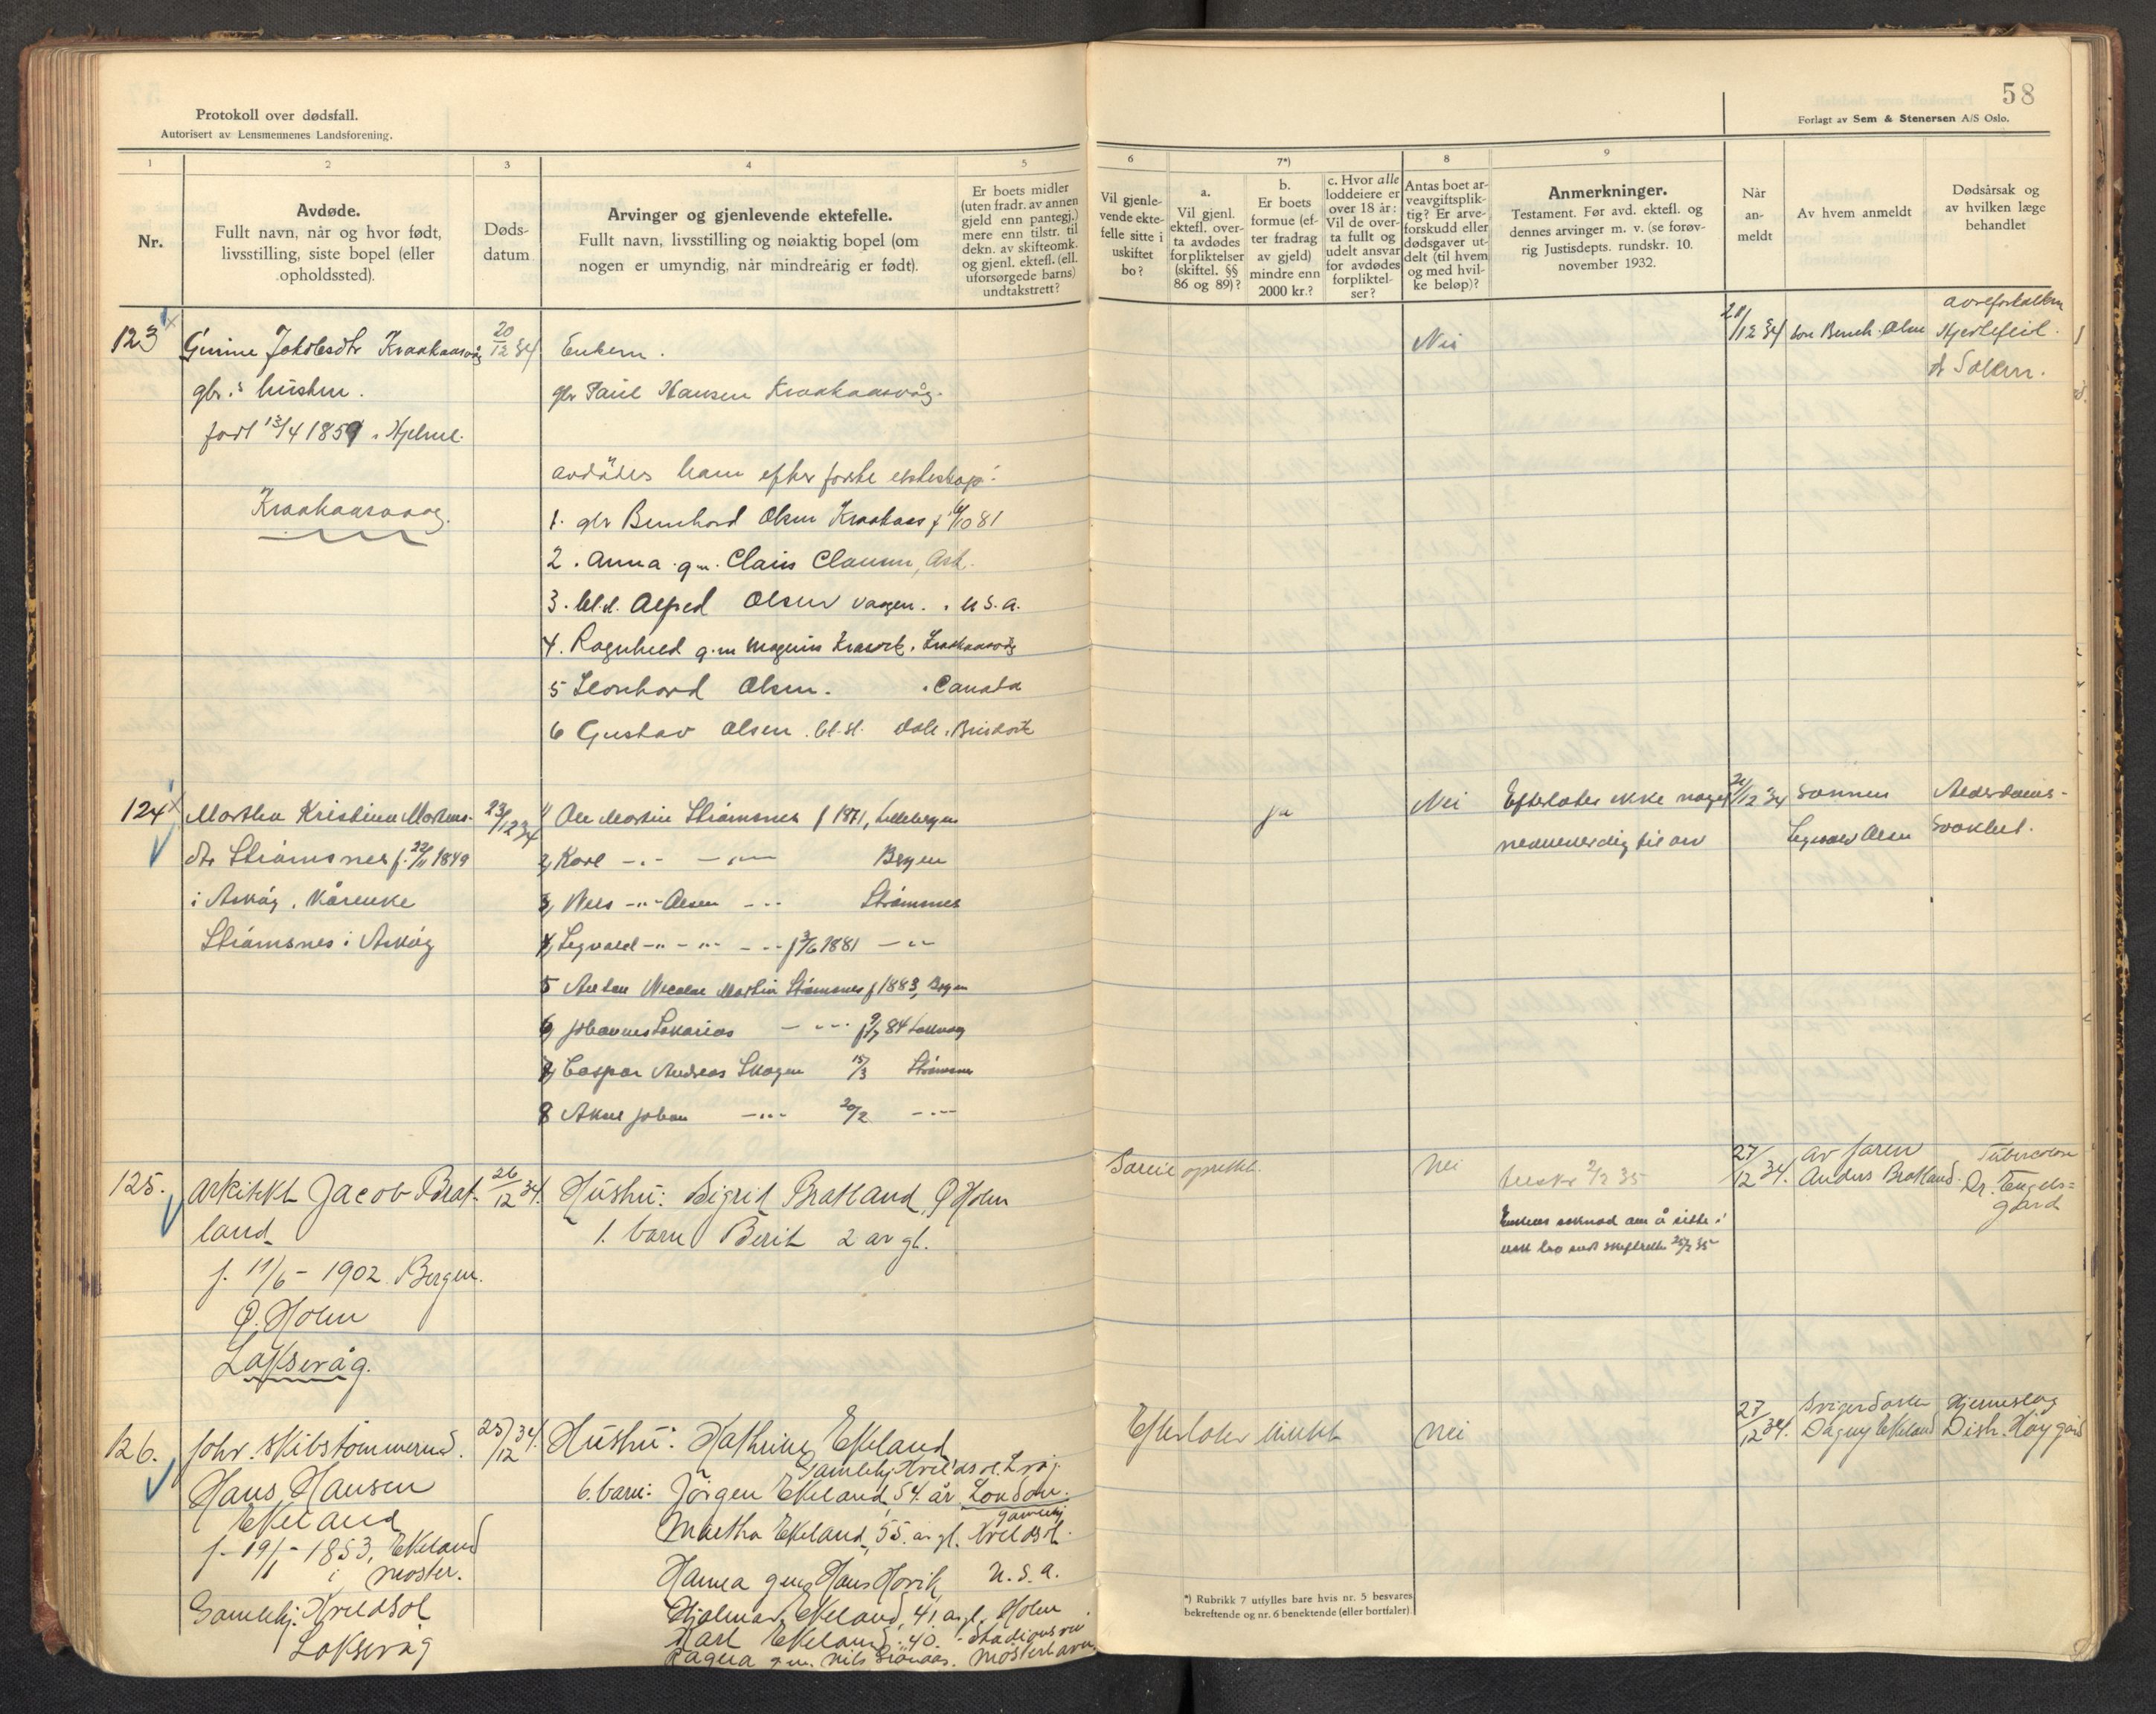 58
Protokoll over dødsfall.
Autorisert av Lensmennenes Landsforening.
Forlagt av Sem & Stenersen A/S Oslo.
1
2
3
4
5
6
7*)
8
9
Nr.
Avdøde.
Fullt navn, når og hvor født,
livsstilling, siste bopel (eller
opholdssted).
Døds-
datum
Arvinger og gjenlevende ektefelle.
Fullt navn, livsstilling og nøiaktig bopel (om
nogen er umyndig, når mindreårig er født).
Er boets midler
(uten fradr. av annen
gjeld enn pantegj.)
mere enn tilstr. til
dekn. av skifteomk.
og gjenl. ektef. (ell.
uforsørgede barns)
undtakstrett?
Vil gjenle-
vende ekte-
felle sitte i
uskiftet
bo?
a.
Vil gjenl.
ektefl. over-
ta avdødes
forpliktelser
(skiftel. §§
86 og 89)?
b.
Er boets
formue (ef-
ter fradrag
av gjeld)
mindre enn
2000 kr.?
c. Hvor alle
loddeiere er
over 18 år:
Vil de over-
ta fullt og
udelt ansvar
for avdødes
forpliktel-
ser?
Antas boet ar-
veavgiftsplik-
tig? Er arve-
forskudd eller
dødsgaver ut-
delt (til hvem
og med hvil-
ke beløp)?
Anmerkninger.
Testament. Før avd. ektefl. og
dennes arvinger m. v. (se forøv-
rig Justisdepts. rundskr. 10.
november 1932.
Når
an-
meldt
Av hvem anmeldt
Dødsårsak og
av hvilken læge
behandlet
123
Gurine Jakobsdtr Kraakaasvåg
20/12 34
gbr.s hustru.
født 13/4 1859 i Hjelme.
Kraakaasvaag.
Enkem.
gbr Paul Hansen Kraakaasvåg.
avdødes barn efter første ekteskap:
1. gbr Bernhard Olsen Kraakaas f. /10 81
2. Anna g.m. Claus Clausen, Ask.
3. Alfred Olsen Vaagen. i U.S.A.
4. Ragnhild g.m Magnus Kraakaasvåg
5 Leonhard Olsen. i Canada
6 Gustav Olsen
Nei
/12 34
Bernh. Olsen
Hjertefeil.
dr Solem.
124
Martha Kristina Martens-
dtr Strømsnes f. 22/11 1849
i Askøy, Kårenke
Strømsnes i Askøy
23/12 34
1) Ole Martin Strømsnes f 1871, Lillebergen
2) Karl -"- -"- Bergen
3) Nils -"- Olsen -"- Strømsnes
4) Sigvald -"- -"- -"- f 3/6 1881 -"-
5 Anton Nicolai Martin Strømsnes f 1883, Bergen
6) Johannes Sakarias -"- f 9/7 84 Laksvåg
7) Caspar Andreas Skogen 15/3 Strømsnes
8 Aksel Johan -"- 20/2 -"-
ja
Nei
Efterlater ikke noget
nevneverdig til arv
/12 34
Sønnen
Sigvald Olsen
Alderdoms-
svakhet.
125.
Arkitekt Jacob Brat-
land
f. 11/6 - 1902. Bergen.
Ø. Holen
Laksevåg.
26/12 34.
Hustru: Sigrid Bratland, Ø Holen
1. barn Berit 2 år gl.
Nei
2/2 35
Enkens søknad om å sitte i
27/12 34.
av faren
Anders Bratland.
Tuberculose
Dr. Engels-
gård
126.
forhv. skibstømmermd.
Hans Hansen
Ekeland
f. 19/1 - 1853, Ekeland
i Moster.
Gamlehj. Kveldsol
Laksevåg
25/12 34.
Hustru: Kathrine Ekeland
Gamlehj. Kveldsol. L.våg.
6. barn: Jørgen Ekeland, 54. år. London.
Martha Ekeland, 55. år gl. Gamlehj Kveldsol.
Hanna gm. Hans Hovik U.S.A.
Hjalmar Ekeland, 41 år gl. Holen
Karl Ekeland. 40. - Stadionsvei
Ragna g.m. Nils Grønaas. Mosterhavn.
Efterlater intet
Nei
27/12 34.
Svigerdatter
Dagny Ekeland
Hjerneslag
Distr. Høygård
*) Rubrikk 7 utfylles bare hvis nr. 5 besvares
bekreftende og nr. 6 benektende (eller bortfaler).